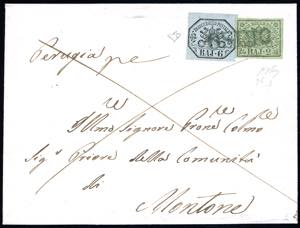 BAJ·6
BAJ·2
Perugia pe
Illmo Signore Prone Colmo
Sigr Priore della Comunità
di
Montone